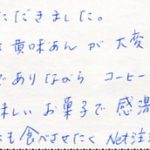 ただきました。
黄味あんが大変
でありながら コーヒー
味しいお菓子で感激
も食べさせたく Net注